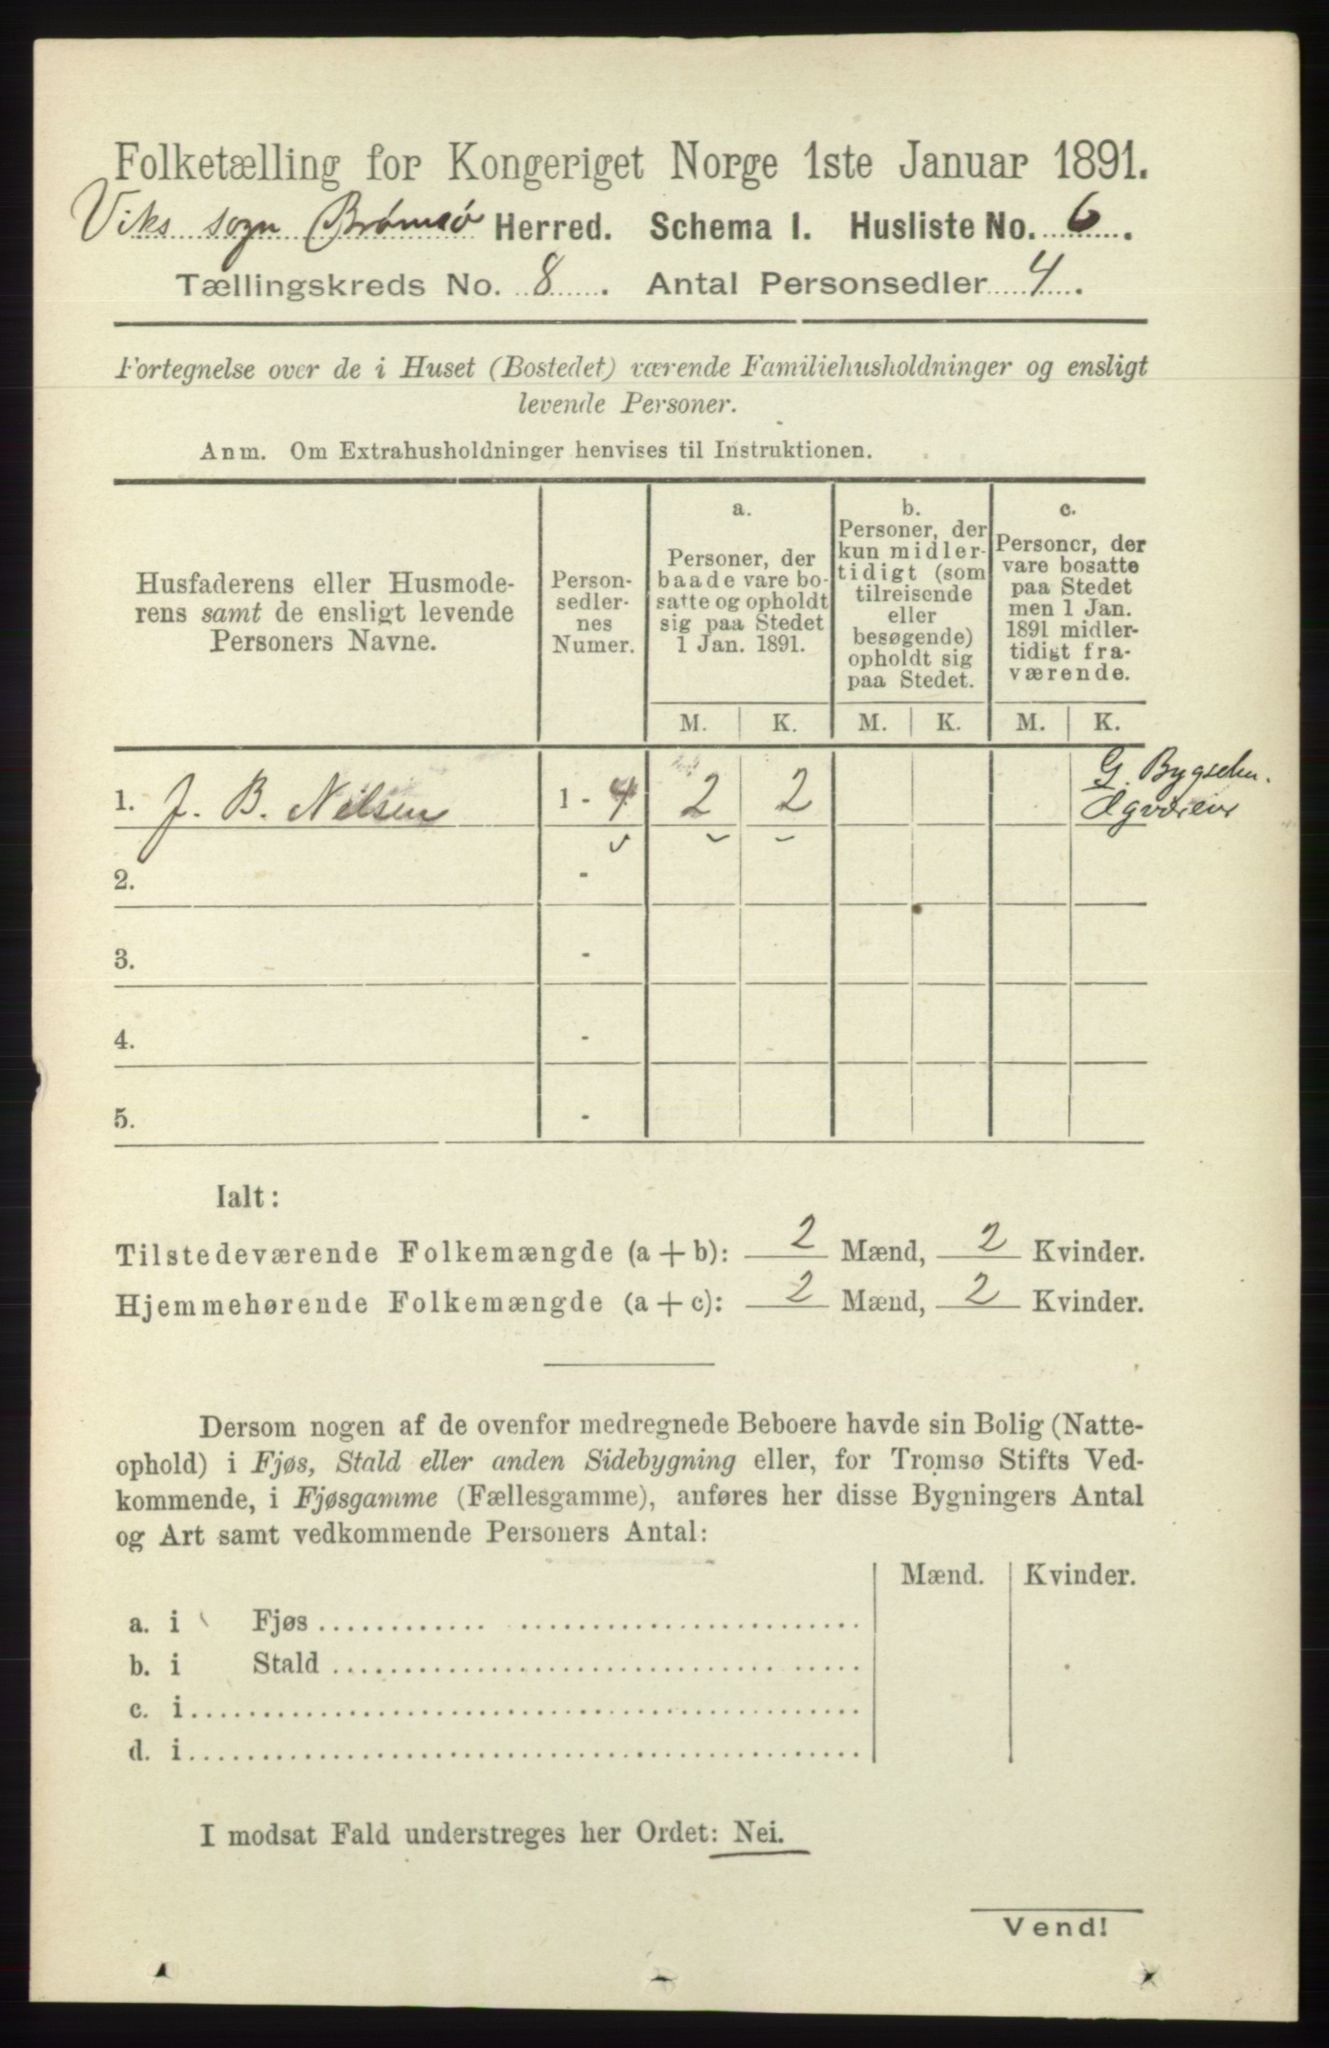 Folketælling for Kongeriget Norge 1ste Januar 1891.
Viks sogn Brømsø Herred. Schema I. Husliste No. 6.
Tællingskreds No. 8. Antal Personsedler 4.
Fortegnelse over de i Huset (Bostedet) værende Familiehusholdninger og ensligt
levende Personer.
Anm. Om Extrahusholdninger henvises til Instruktionen.
Husfaderens eller Husmode-
rens samt de ensligt levende
Personers Navne.
Person-
sedler-
nes
Numer.
a.
Personer, der
baade vare bo-
satte og opholdt
sig paa Stedet
1 Jan. 1891.
b.
Personer, der
kun midler-
tidigt (som
tilreisende
eller
besøgende)
opholdt sig
paa Stedet.
c.
Personer, der
vare bosatte
paa Stedet
men 1 Jan.
1891 midler-
tidigt fra-
værende.
M. K. M. K. M. K.
1. J. B. Nilsen 1 - 4 2 2
G. Bygseln.
2. -
3. -
4. -
5. -
Ialt:
Tilstedeværende Folkemængde (a + b): 2 Mænd, 2 Kvinder.
Hjemmehørende Folkemængde (a + c): 2 Mænd, 2 Kvinder.
Dersom nogen af de ovenfor medregnede Beboere havde sin Bolig (Natte-
ophold) i Fjøs, Stald eller anden Sidebygning eller, for Tromsø Stifts Ved-
kommende, i Fjøsgamme (Fællesgamme), anføres her disse Bygningers Antal
og Art samt vedkommende Personers Antal:
Mænd. Kvinder.
a. i Fjøs
b. i Stald
c. i
d. i
I modsat Fald understreges her Ordet: Nei.
Vend!